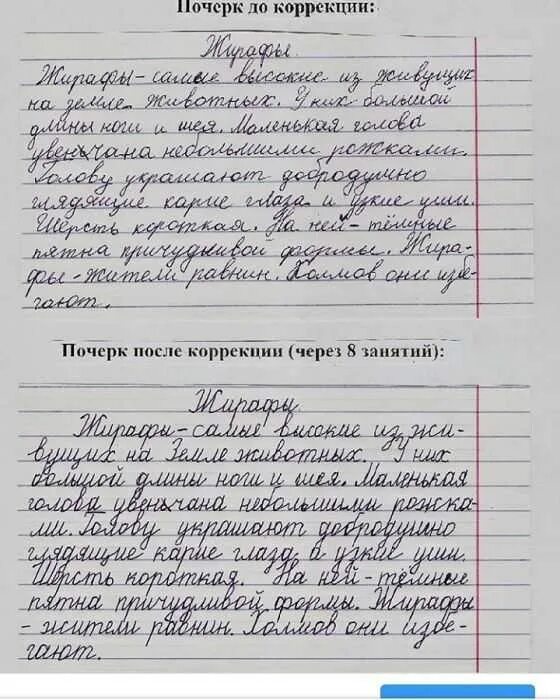 Почерк до коррекции:
Жирафы.
Жирафы - самые высокие из живущих
на земле животных. У них большой
длины ноги и шея. Маленькая голова
увенчана небольшими рожками.
Голову украшают добродушно
глядящие карие глаза и узкие уши.
Шерсть короткая. На ней - тёмные
пятна причудливой формы. Жира-
фы - жители равнин. Холмов они избе-
гают.
Почерк после коррекции (через 8 занятий):
Жирафы.
Жирафы - самые высокие из жи-
вущих на Земле животных. У них
большой длины ноги и шея. Маленькая
голова увенчана небольшими рожка-
ми. Голову украшают добродушно
глядящие карие глаза и узкие уши.
Шерсть короткая. На ней - тёмные
пятна причудливой формы. Жирафы
- жители равнин. Холмов они избе-
гают.